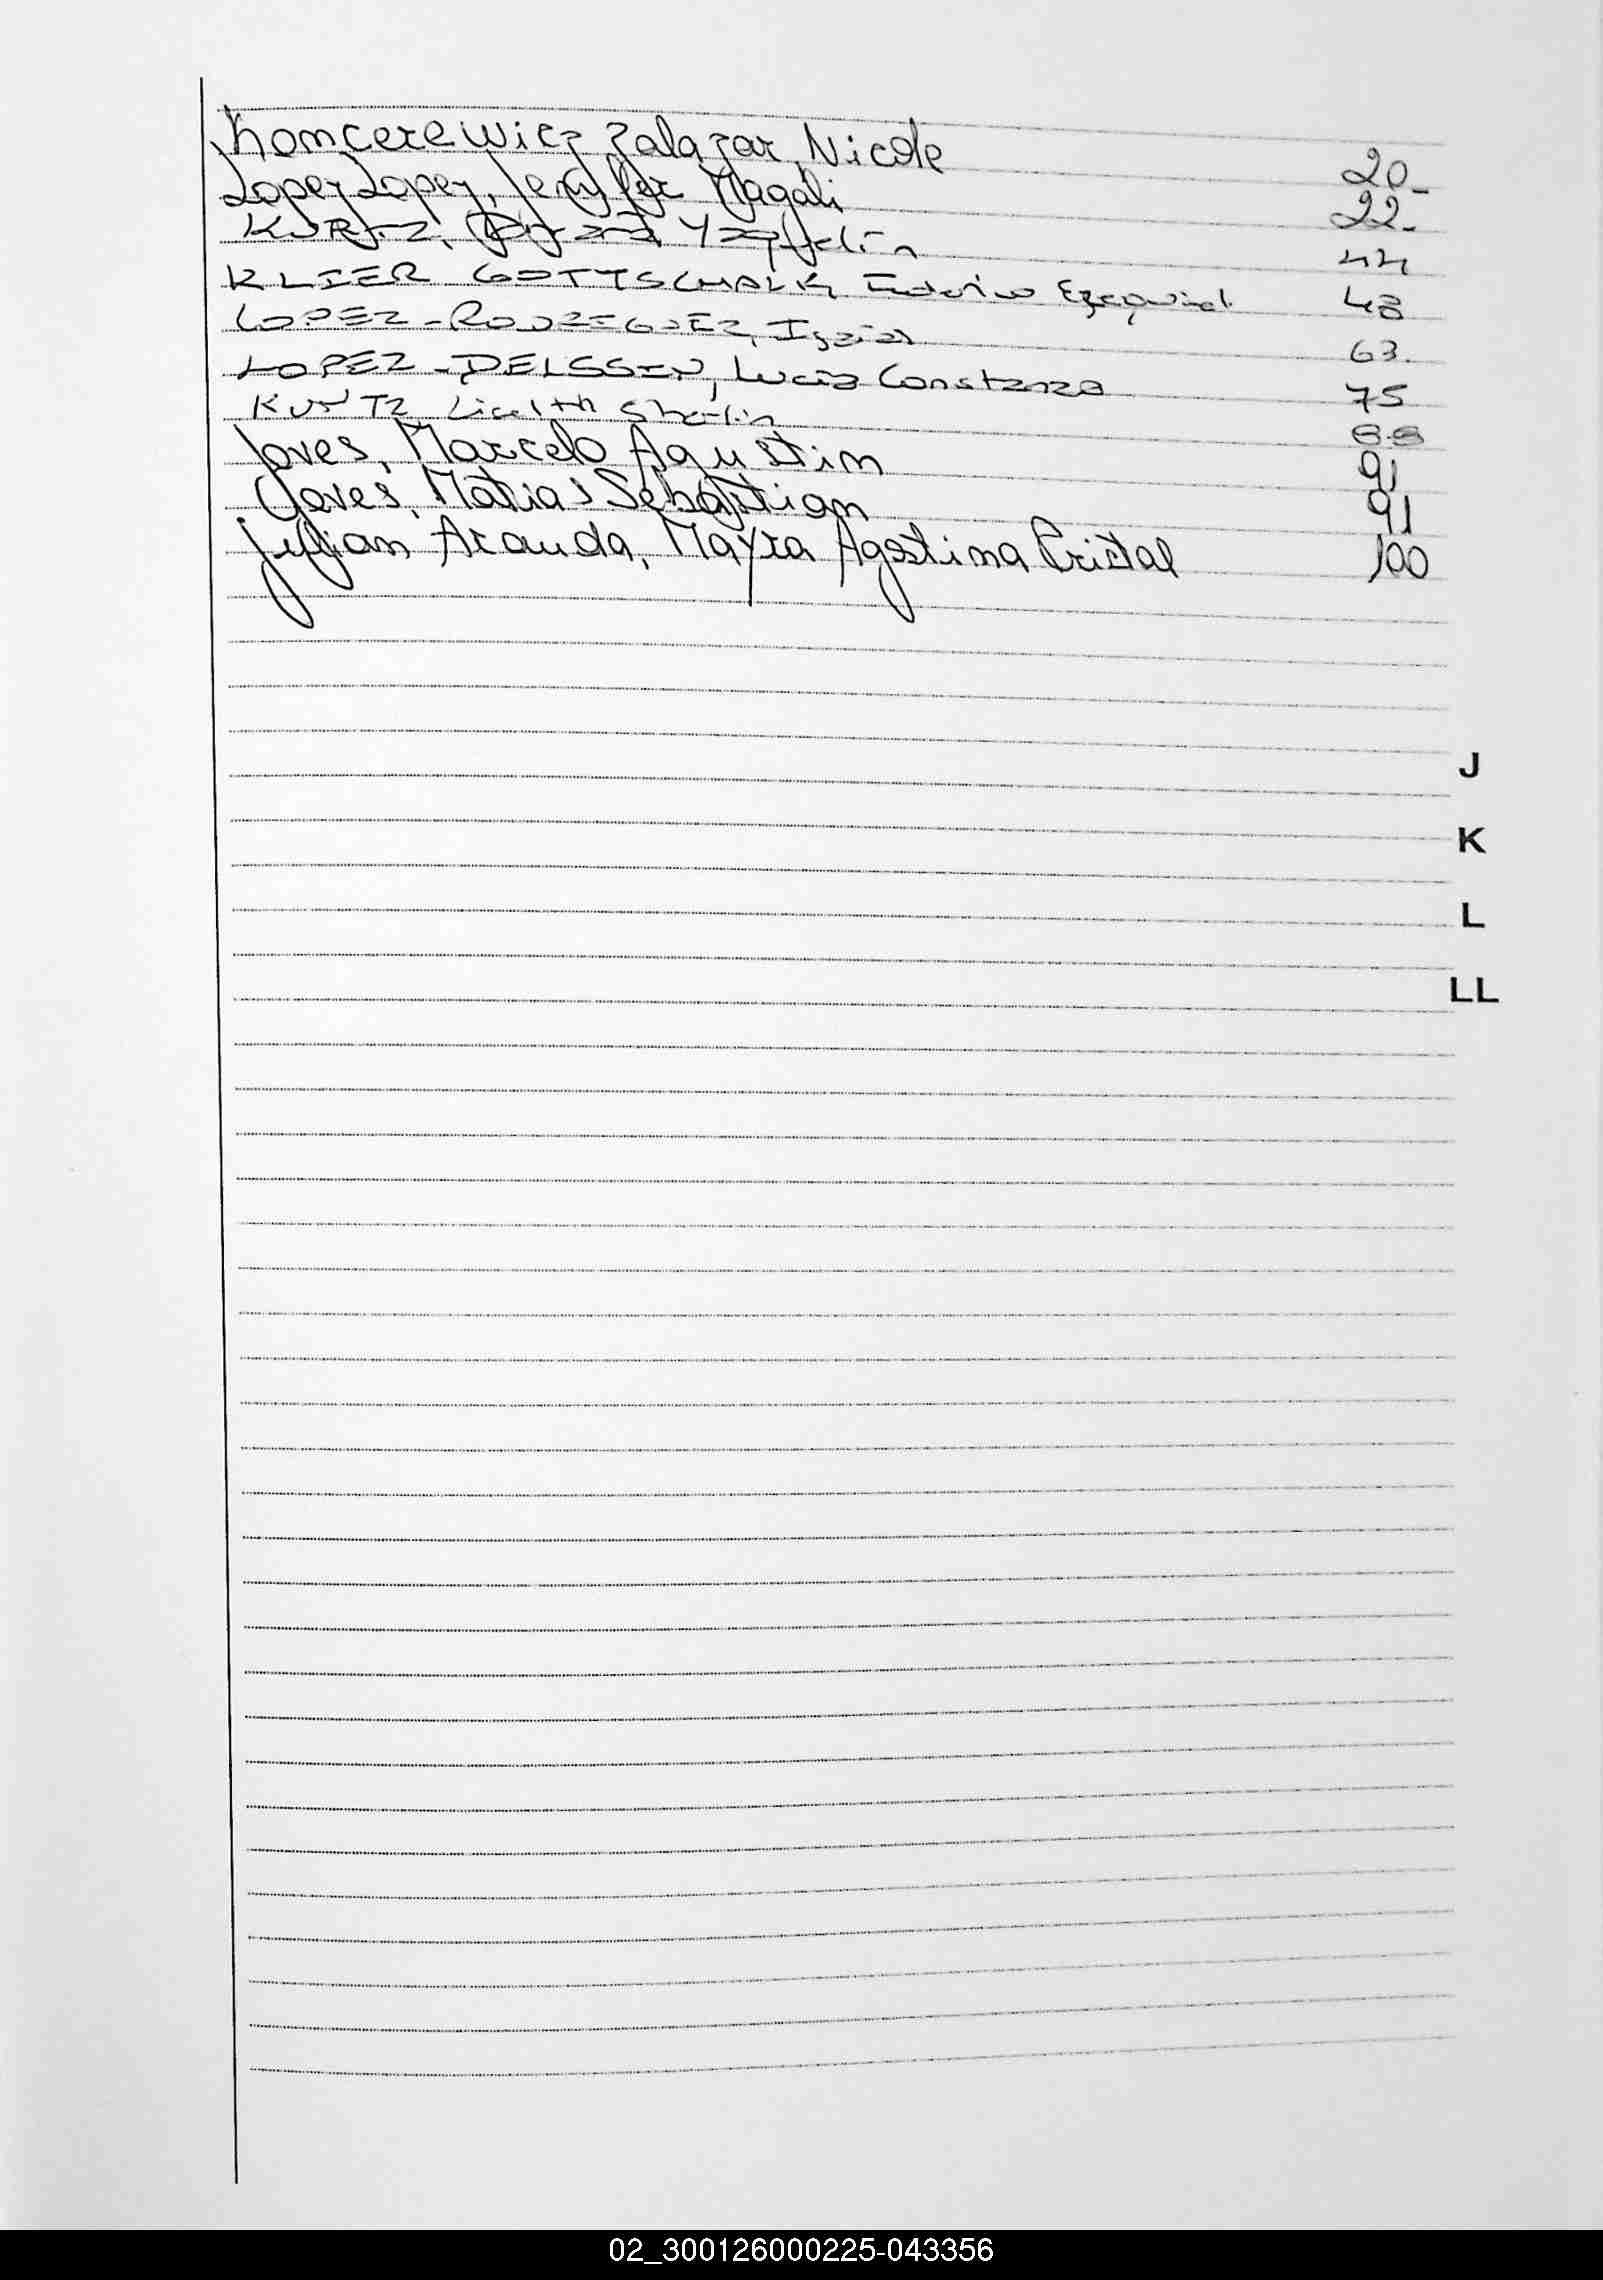 Komcerewicz Zalazar, Nicole 20-
Lopez Lopez, Jennyfer Magali 22-
KURTZ, Yaquelin 44
KLIER GOTTSCHALK Federico Ezequiel 48
LOPEZ - RODRIGUEZ, Isaias 63.
LOPEZ - DELSSIN, Lucia Constanza 75
KUNTZ Liselth 88
Joves, Marcelo Agustin 91
Joves, Matias Sebastian 91
Julian Aranda, Mayra Agostina Cristal 100
J
K
L
LL
02_300126000225-043356